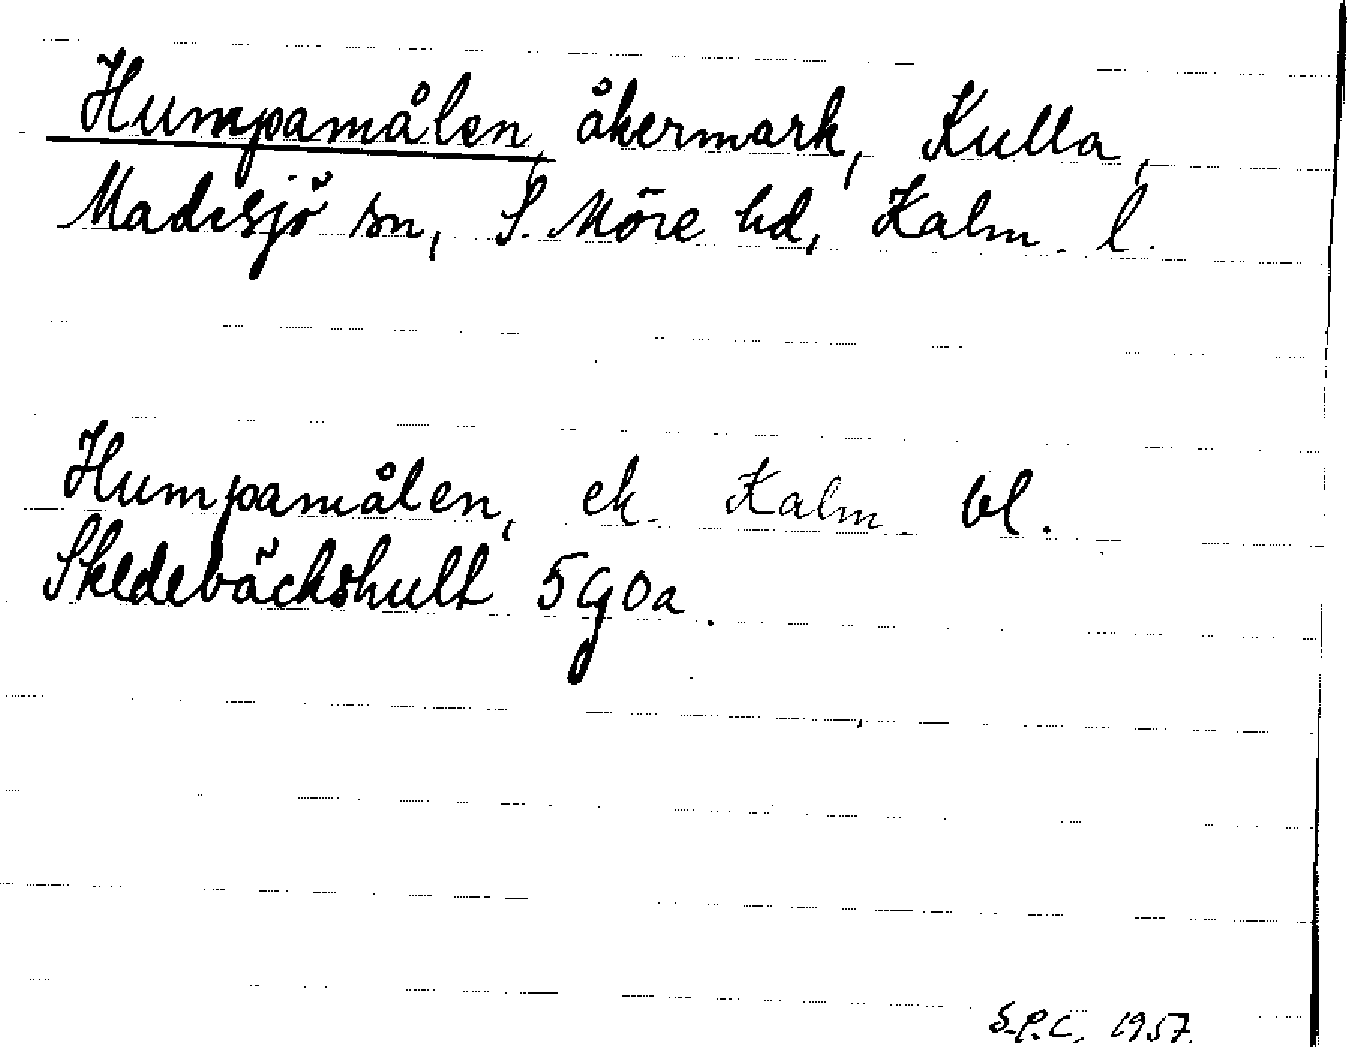 Humpamålen, åkermark, Kulla,
Madesjö sn, S. Möre hd, Kalm. l.
Humpamålen, ek. Kalm. bl.
Skedebäckshult 5G0a.
S.P.C. 1957.